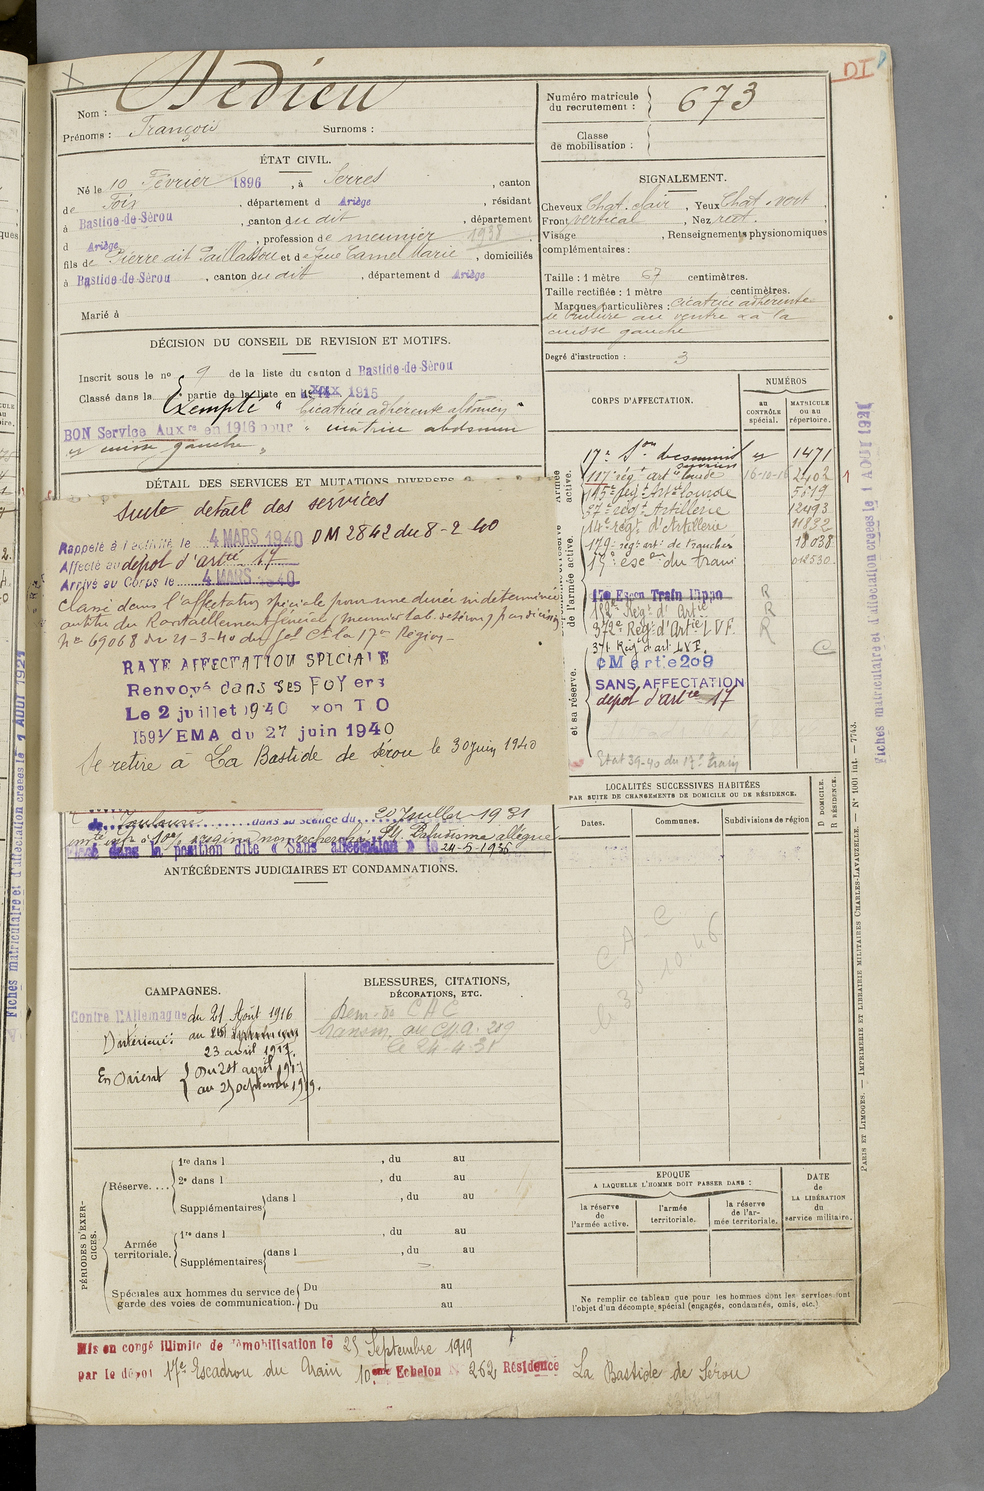 DI
Nom : Dedieu
Prénoms : François Surnoms :
Numéro matricule du recrutement : 673
Classe de mobilisation :
ÉTAT CIVIL.
Né le 10 Février 1896, à Serres, canton
de Foix, département d Ariège, résidant
à Bastide-de-Sérou, canton du dit, département
d Ariège, profession de meunier 1938
fils de Pierre dit Paillassou et de feue Camel Marie, domiciliés
à Bastide-de-Sérou, canton du dit, département d Ariège
Marié à
SIGNALEMENT.
Cheveux Chat. clair, Yeux Chat. vert
Front vertical, Nez rect.
Visage , Renseignements physionomiques
complémentaires :
Taille : 1 mètre 67 centimètres.
Taille rectifiée : 1 mètre centimètres.
Marques particulières : cicatrice adhérente
de brulure au ventre et à la
cuisse gauche
Degré d'instruction : 3
DÉCISION DU CONSEIL DE REVISION ET MOTIFS.
Inscrit sous le no 9 de la liste du canton d Bastide-de-Sérou
Classé dans la partie de la liste en 1915
Exempté " Cicatrice adhérente abdomen "
BON Service Auxre en 1916 pour " cicatrice abdomen
et cuisse gauche "
DÉTAIL DES SERVICES ET MUTATIONS DIVERSES
Suite détail des services
Rappelé à l'activité le 4 MARS 1940 DM 2842 du 8-2 40
Affecté au dépot d'artie 17
Arrivé au Corps le 4 MARS 1940
Classé dans l'affectation spéciale pour une durée indéterminée
au titre du Ravitaillement général (meunier Lab. de Sérou) par décision
No 69068 du 21-3-40 du Gal Ct la 17e Région
RAYE AFFECTATION SPECIALE
Renvoyé dans ses FOYers
Le 2 juillet 1940 xon T O
1591/EMA du 27 juin 1940
Se retire à La Bastide de Sérou le 30 juin 1940
Toulouse dans sa séance du 20 Juillet 1931
Paludisme allégué
Placé dans la position dite « Sans affectation » le 24-5-1936
CORPS D'AFFECTATION.
NUMÉROS
au CONTRÔLE spécial.
MATRICULE ou au répertoire.
Armée active.
et sa réserve.
17e Son 1471
117e régt art. lourde 16-10-16 2402
115e régt Artie lourde 5519
57e régt Artillerie 12493
14e régt d'Artillerie 11832
179e régt art. de tranchées 18038
17e escon du train 012530
17e Escon Train Hippo R
182e Régt d'Artie R
372e Régt d'Artie LVF. R
371 Régt d'art LVF. C
CM artie 209
SANS AFFECTATION
dépot d'artie 17
Etat 39-40 du 17e train
LOCALITÉS SUCCESSIVES HABITÉES
PAR SUITE DE CHANGEMENTS DE DOMICILE OU DE RÉSIDENCE.
Dates. Communes. Subdivisions de région D DOMICILE. R RÉSIDENCE.
ANTÉCÉDENTS JUDICIAIRES ET CONDAMNATIONS.
CAMPAGNES.
Contre l'Allemagne du 21 Août 1916
Intérieur : au
23 avril 1917.
En Orient Du 24 avril 1917
au 25 septembre 1919.
BLESSURES, CITATIONS,
DÉCORATIONS, ETC.
Dem. de CAC
transm. au CMA 209
le 24-4-31
CAC
30 10 46
PÉRIODES D'EXERCICES.
Réserve.... 1re dans l , du au
2e dans l , du au
Supplémentaires dans l , du au
Armée territoriale. 1re dans l , du au
Supplémentaires dans l , du au
Spéciales aux hommes du service de Du au
garde des voies de communication. Du au
EPOQUE
A LAQUELLE L'HOMME DOIT PASSER DANS :
la réserve de l'armée active.
l'armée territoriale.
la réserve de l'armée territoriale.
DATE de LA LIBÉRATION du service militaire.
Ne remplir ce tableau que pour les hommes dont les services font
l'objet d'un décompte spécial (engagés, condamnés, omis, etc.)
Mis en congé illimité de démobilisation le 25 Septembre 1919
par le dépôt 17e Escadron du Train 10eme Echelon N 262 Résidence La Bastide de Sérou
Fiches matriculaire et d'affectation créées le 1 AOUT 1921
PARIS ET LIMOGES. — IMPRIMERIE ET LIBRAIRIE MILITAIRES CHARLES-LAVAUZELLE. — No 1001 int. — 7743.
Fiches matriculaire et d'affectation créées le 1 AOUT 1921